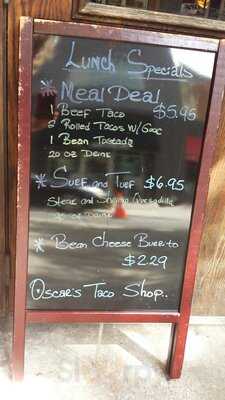 Lunch Specials
* Meal Deal
1 Beef Taco $5.95
2 Rolled Tacos w/ Guac
1 Bean Tostada
20 oz Drink
* Surf and Turf $6.95
Steak and Shrimp Quesadilla
oz
* Bean Cheese Burrito
$2.29
Oscar's Taco Shop..